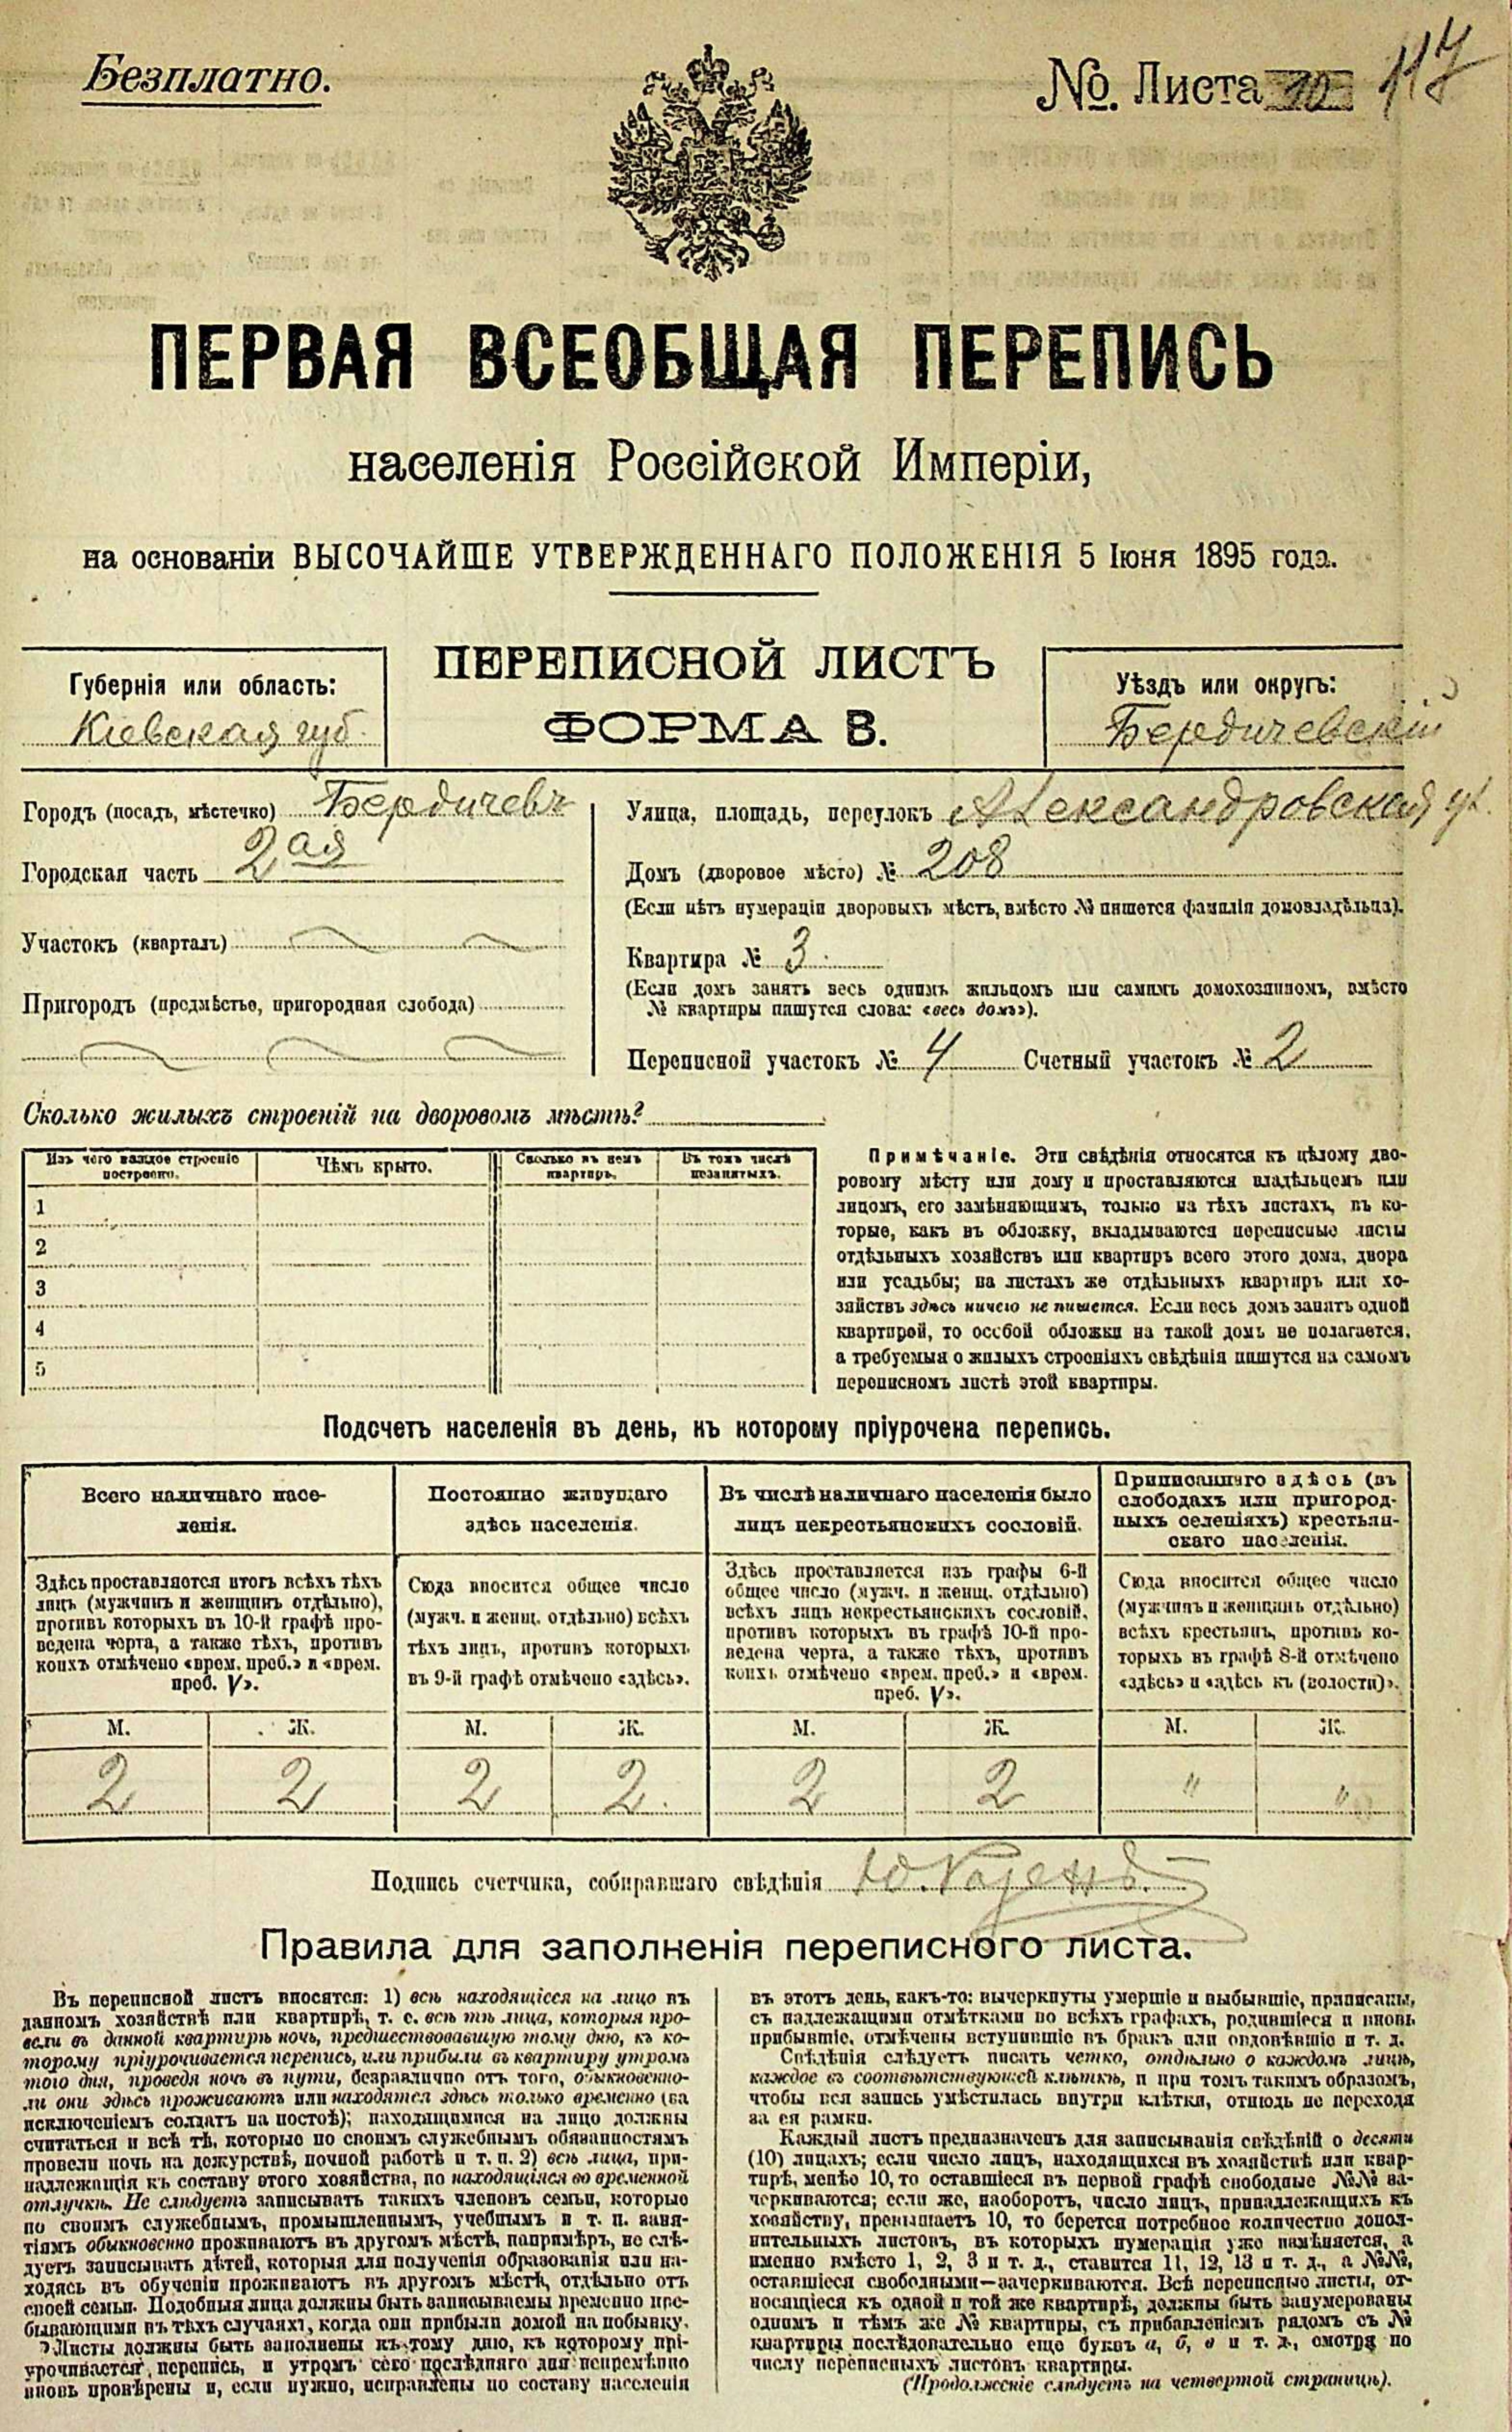 Безплатно.
№. Листа 10 117
ПЕРВАЯ ВСЕОБЩАЯ ПЕРЕПИСЬ
населенія Россійской Имперіи,
на основаніи ВЫСОЧАЙШЕ УТВЕРЖДЕННАГО ПОЛОЖЕНІЯ 5 Іюня 1895 года.
ПЕРЕПИСНОЙ ЛИСТЪ
ФОРМА В.
Губернія или область:
Кіевская губ.
Уѣздъ или округъ:
Бердичевскій
Городъ (посадъ, мѣстечко) Бердичевъ
Городская часть 2ая
Участокъ (кварталъ)
Пригородъ (предмѣстье, пригородная слобода)
Улица, площадь, переулокъ Александровская ул.
Домъ (дворовое мѣсто) № 208
(Если нѣтъ нумераціи дворовыхъ мѣстъ, вмѣсто № пишется фамилія домовладѣльца).
Квартира № 3
(Если домъ занятъ весь однимъ жильцомъ или самимъ домохозяиномъ, вмѣсто
№ квартиры пишутся слова: «весь домъ»).
Переписной участокъ № 4 Счетный участокъ № 2
Сколько жилыхъ строеній на дворовомъ мѣстѣ?
Изъ чего каждое строеніе
построено.
Чѣмъ крыто.
Сколько въ немъ
квартиръ.
Въ томъ числѣ
незанятыхъ.
1
2
3
4
5
Примѣчаніе. Эти свѣдѣнія относятся къ цѣлому дво-
ровому мѣсту или дому и проставляются владѣльцемъ или
лицомъ, его замѣняющимъ, только на тѣхъ листахъ, въ ко-
торые, какъ въ обложку, вкладываются переписные листы
отдѣльныхъ хозяйствъ или квартиръ всего этого дома, двора
или усадьбы; на листахъ же отдѣльныхъ квартиръ или хо-
зяйствъ здѣсь ничего не пишется. Если весь домъ занятъ одной
квартирой, то особой обложки на такой домъ не полагается,
а требуемыя о жилыхъ строеніяхъ свѣдѣнія пишутся на самомъ
переписномъ листѣ этой квартиры.
Подсчетъ населенія въ день, къ которому пріурочена перепись.
Всего наличнаго насе-
ленія.
Здѣсь проставляется итогъ всѣхъ тѣхъ
лицъ (мужчинъ и женщинъ отдѣльно),
противъ которыхъ въ 10-й графѣ про-
ведена черта, а также тѣхъ, противъ
коихъ отмѣчено «врем. преб.» и «врем.
преб. V».
Постоянно живущаго
здѣсь населенія.
Сюда вносится общее число
(мужч. и женщ. отдѣльно) всѣхъ
тѣхъ лицъ, противъ которыхъ
въ 9-й графѣ отмѣчено «здѣсь».
Въ числѣ наличнаго населенія было
лицъ некрестьянскихъ сословій.
Здѣсь проставляется изъ графы 6-й
общее число (мужч. и женщ. отдѣльно)
всѣхъ лицъ некрестьянскихъ сословій,
противъ которыхъ въ графѣ 10-й про-
ведена черта, а также тѣхъ, противъ
коихъ отмѣчено «врем. преб.» и «врем.
преб. V».
Приписаннаго здѣсь (въ
слободахъ или пригород-
ныхъ селеніяхъ) крестьян-
скаго населенія.
Сюда вносится общее число
(мужчинъ и женщинъ отдѣльно)
всѣхъ крестьянъ, противъ ко-
торыхъ въ графѣ 8-й отмѣчено
«здѣсь» и «здѣсь къ (волости)».
М. Ж. М. Ж. М. Ж. М. Ж.
2 2 2 2 2 2 " "
Подпись счетчика, собиравшаго свѣдѣнія
Правила для заполненія переписного листа.
Въ переписной листъ вносятся: 1) всѣ находящіеся на лицо въ
данномъ хозяйствѣ или квартирѣ, т. е. всѣ тѣ лица, которыя про-
вели въ данной квартирѣ ночь, предшествовавшую тому дню, къ ко-
торому пріурочивается перепись, или прибыли въ квартиру утромъ
того дня, проведя ночь въ пути, безразлично отъ того, обыкновенно-
ли они здѣсь проживаютъ или находятся здѣсь только временно (за
исключеніемъ солдатъ на постоѣ); находящимися на лицо должны
считаться и всѣ тѣ, которые по своимъ служебнымъ обязанностямъ
провели ночь на дежурствѣ, ночной работѣ и т. п. 2) всѣ лица, при-
надлежащія къ составу этого хозяйства, но находящіяся во временной
отлучкѣ. Не слѣдуетъ записывать такихъ членовъ семьи, которые
по своимъ служебнымъ, промышленнымъ, учебнымъ и т. п. заня-
тіямъ обыкновенно проживаютъ въ другомъ мѣстѣ, напримѣръ, не слѣ-
дуетъ записывать дѣтей, которыя для полученія образованія или на-
ходясь въ обученіи проживаютъ въ другомъ мѣстѣ, отдѣльно отъ
своей семьи. Подобныя лица должны быть записываемы временно пре-
бывающими въ тѣхъ случаяхъ, когда они прибыли домой на побывку.
Листы должны быть заполнены къ тому дню, къ которому прі-
урочивается перепись, и утромъ сего послѣдняго дня непремѣнно
вновь провѣрены и, если нужно, исправлены по составу населенія
въ этотъ день, какъ-то: вычеркнуты умершіе и выбывшіе, приписаны,
съ надлежащими отмѣтками во всѣхъ графахъ, родившіеся и вновь
прибывшіе, отмѣчены вступившіе въ бракъ или овдовѣвшіе и т. д.
Свѣдѣнія слѣдуетъ писать четко, отдѣльно о каждомъ лицѣ,
каждое въ соотвѣтствующей клѣткѣ, и при томъ такимъ образомъ,
чтобы вся запись умѣстилась внутри клѣтки, отнюдь не переходя
за ея рамки.
Каждый листъ предназначенъ для записыванія свѣдѣній о десяти
(10) лицахъ; если число лицъ, находящихся въ хозяйствѣ или квар-
тирѣ, менѣе 10, то оставшіеся въ первой графѣ свободные №№ за-
черкиваются; если же, наоборотъ, число лицъ, принадлежащихъ къ
хозяйству, превышаетъ 10, то берется потребное количество допол-
нительныхъ листовъ, въ которыхъ нумерація уже измѣняется, а
именно вмѣсто 1, 2, 3 и т. д., ставится 11, 12, 13 и т. д., а №№,
оставшіеся свободными—зачеркиваются. Всѣ переписные листы, от-
носящіеся къ одной и той же квартирѣ, должны быть занумерованы
однимъ и тѣмъ же № квартиры, съ прибавленіемъ рядомъ съ №
квартиры послѣдовательно еще буквъ а, б, в и т. д., смотря по
числу переписныхъ листовъ квартиры.
(Продолженіе слѣдуетъ на четвертой страницѣ).